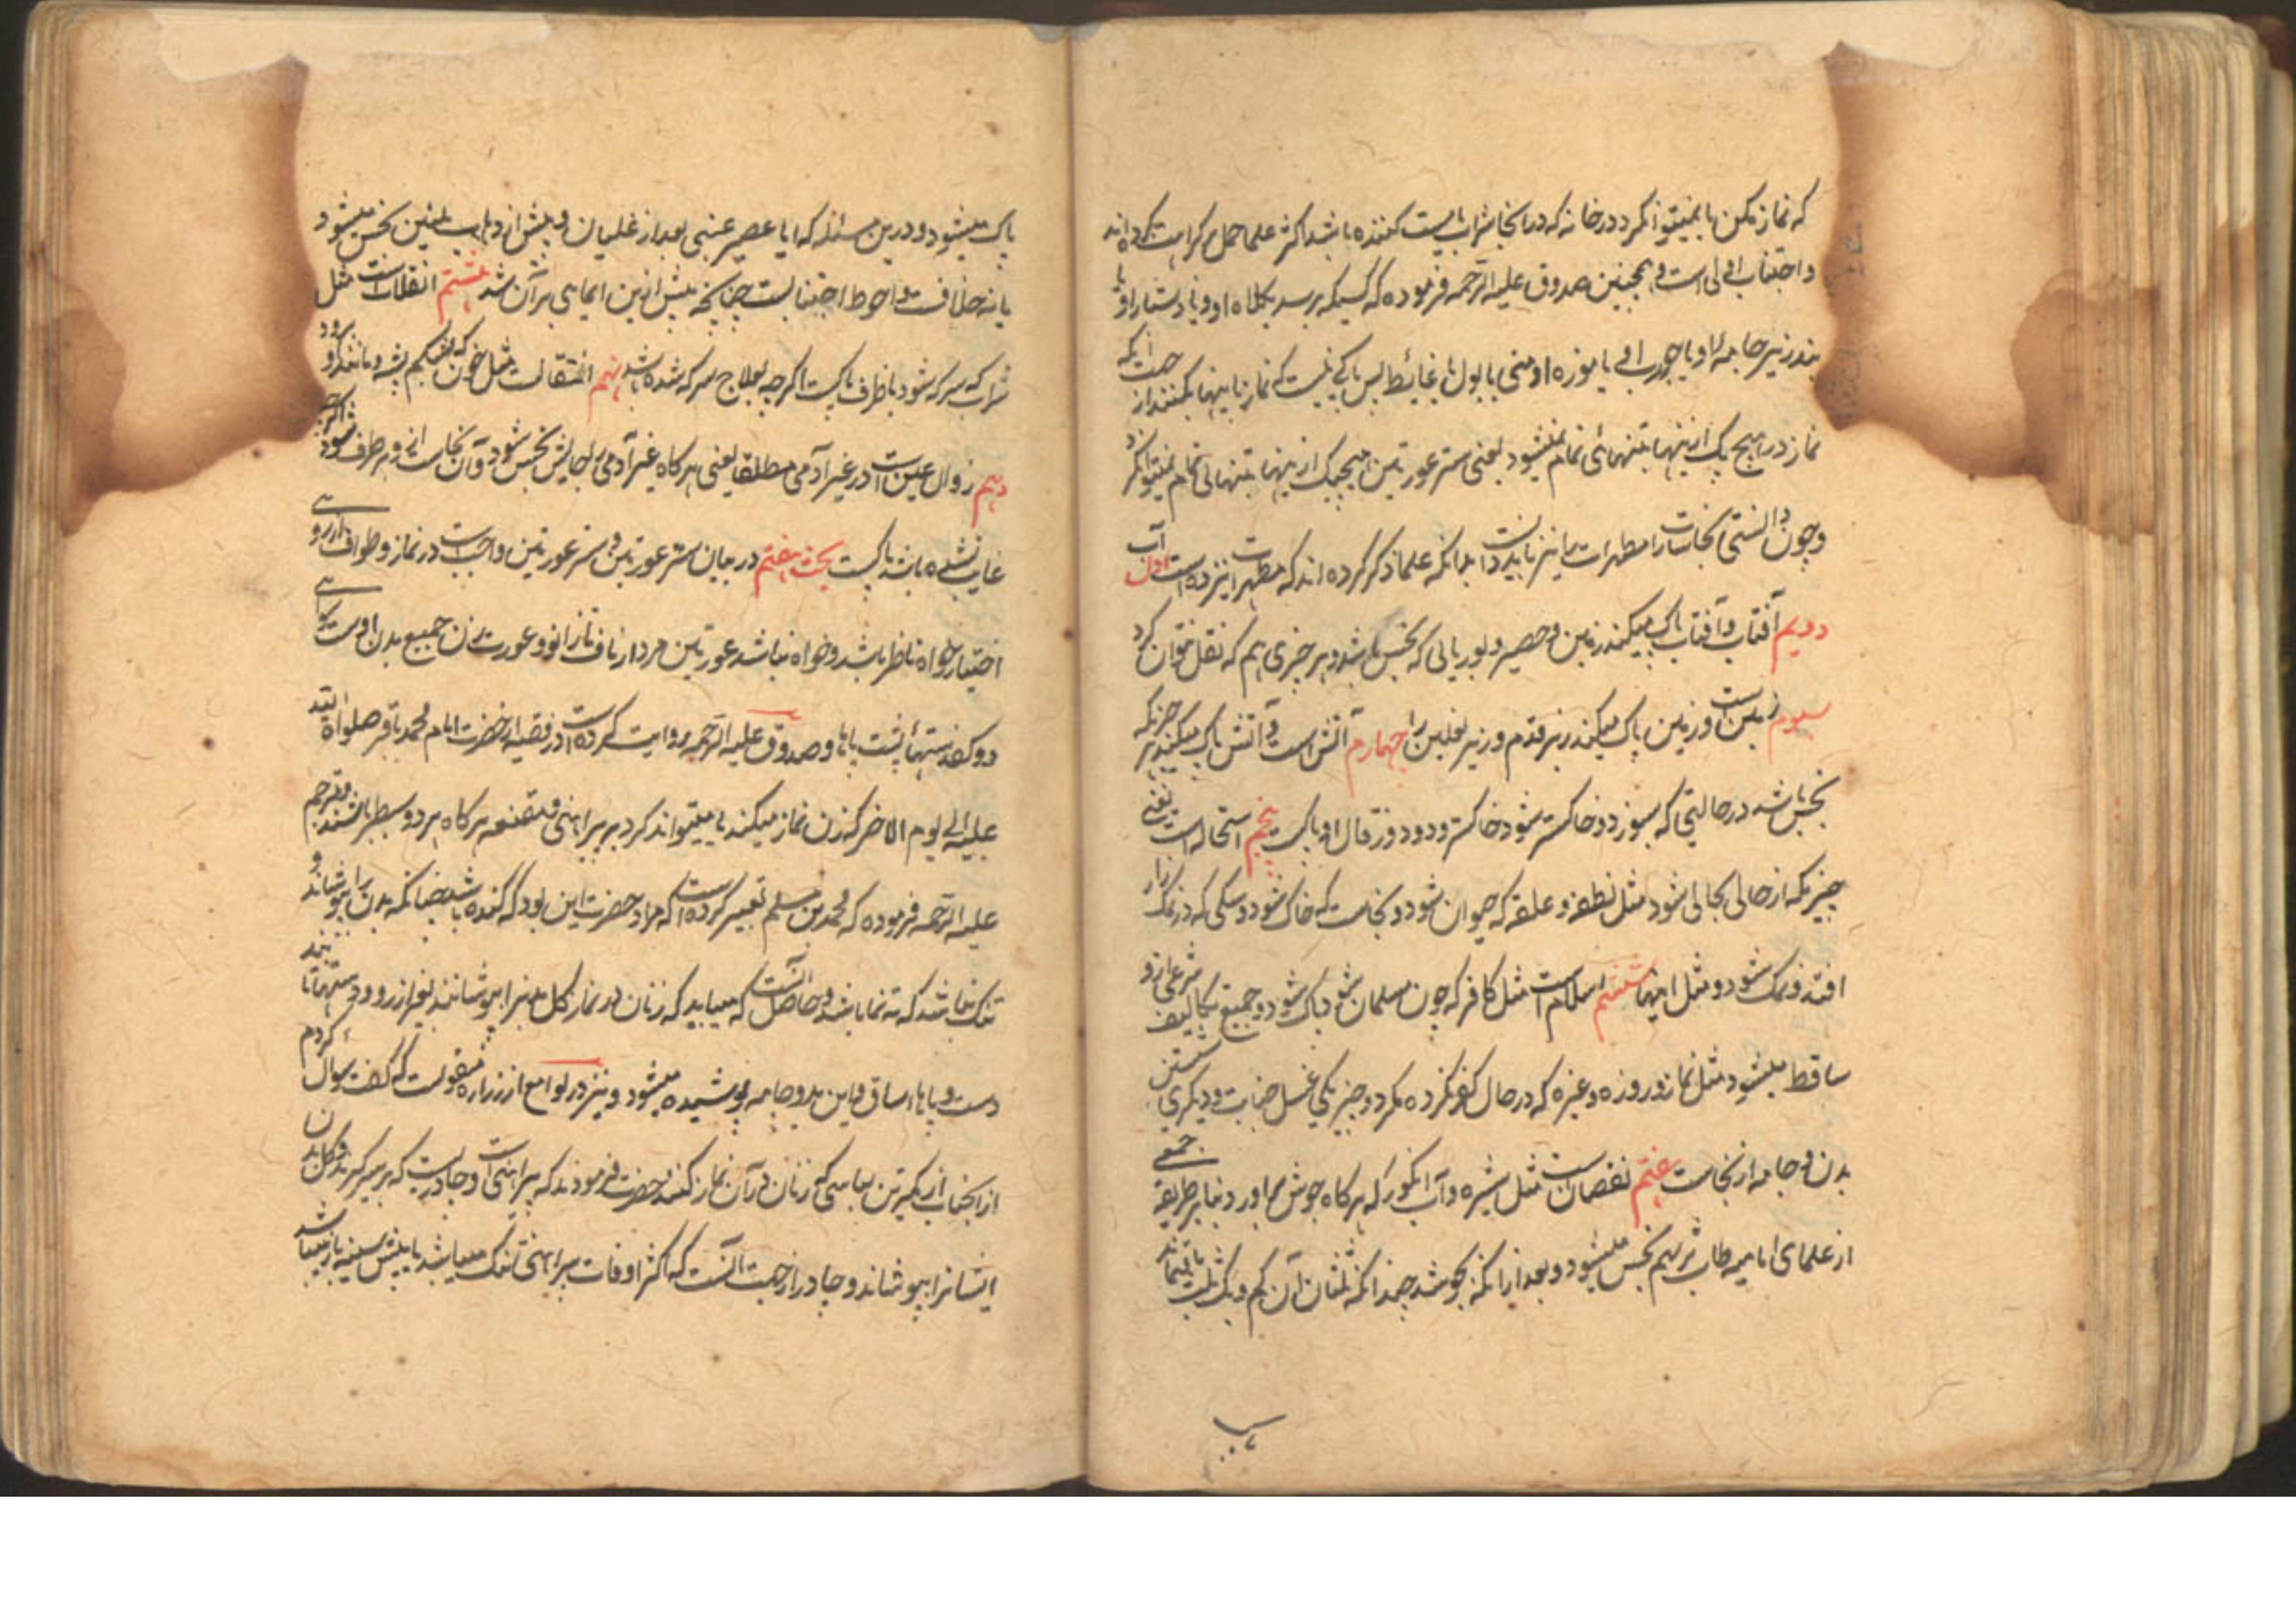 که نماز مکن یا نمیتوان کرد در خانه که در انجا شراب مست کننده باشد اکثر علما حمل بر کراهت کرده اند
و اجتناب اولی است و همچنین صدوق علیه الرحمه فرموده که کسیکه برسد بکلاه او و یا دستار او یا
بند زیر جامه او یا جورب او یا موزه او منی یا بول یا غائط پس باکی نیست که نماز باینها بکنند از جهت انکه
نماز در هیچ یک ازینها بتنهائی تمام نمیشود یعنی ستر عورتین بهیچیک ازینها بتنهائی تمام نمیتوان کرد
و چون دانستی نجاسات را مطهرات را نیز باید دانست بدانکه علما ذکر کرده اند که مطهرات نیز ده است اول آب
دویم آفتاب و آفتاب پاک میکند زمین و حصیر و بوریائی که نجس باشد و هر چیزی هم که نقل نتوان کرد
سیوم زمین است و زمین پاک میکند زیر قدم و زیر نعلین را چهارم آتش است و آتش پاک میکند هر چیزیکه
نجس باشد در حالتی که بسوزد و خاکستر شود خاکستر و دود و زقال او پاکست پنجم استحاله است یعنی
چیزیکه از حالی بحالی شود مثل نطفه و علقه که حیوان شود و نجاست که خاک شود و سگی که در نمک زار
افتد و نمک شود و مثل اینها ششم اسلام است مثل کافر که چون مسلمان شود پاک شود و جمیع تکالیف شرعی از و
ساقط میشود مثل نماز و روزه و غیره که در حال کفر نکرده مگر دو چیز یکی غسل جنابت و دیگری شستن
بدن و جامه از نجاست هفتم نقصان است مثل شیره و آب انگور که هرگاه جوش اورد بنابر طریقه جمعی
از علمای امامیه طاب ثراهم نجس میشود و بعد از انکه بجوشد چندانکه ثلثان آن کم و یک ثلث باقیماند
پاک میشود و درین مسئله که ایا عصیر عنبی بعد از غلیان و پیش از ذهاب ثلثین نجس میشود
یا نه خلافست و احوط اجتنابست چنانچه پیش ازین ایمایی بر آن شد هشتم انقلابست مثل
شراب که سرکه شود با ظرف پاکست اگر چه بعلاج سرکه شده باشد نهم انتقالست مثل خون که بشکم پشه و مانند او رود
دهم زوال عین است در غیر آدمی مطلقا یعنی هرگاه غیر آدمی جایش نجس شود و آن نجاست از و بر طرف شود اگر چه
غایب نشده باشد پاکست بحث هفتم در بیان ستر عورتین و ستر عورتین واجبست در نماز و طواف از روی
اختیار خواه ناظر باشد و خواه نباشد عورتین مرد از ناف تا زانو و عورت زن جمیع بدن اوست سوای
دو کف دستها و پشت پاها و صدوق علیه الرحمه روایت کرده است در فقیه از حضرت امام محمد باقر صلواة الله
علیه الی یوم الاخر که زن نماز میکند یا میتواند کرد بر پیراهنی و مقنعه هرگاه هر دو سطبر باشند مترجم
علیه الرحمه فرموده که محمد بن مسلم تفسیر کرده است که مراد حضرت این بود که گنده باشد چنانکه بدن را بپوشاند و
تنک نباشد که ته نما باشد و حاصل انست که میباید که زنان در نماز کل بدنرا بپوشانند بغیر از رو و دستها تا بند
دست و پاها تا ساق و این بدو جامه پوشیده میشود و نیز در لوامع از زراره منقولست که گفت سوال کردم
از انجناب از کمترین لباسی که زنان در آن نماز کنند حضرت فرمودند که پیراهنی است و چادریست که بر سر گیرند و کل بدن
ایشانرا بپوشاند و چادر از جهت انست که اکثر اوقات پیراهنی تنک میباشد یا پیش سینه باز میباشد